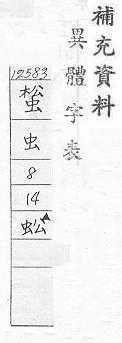 補充資料
異體字表
12583
虫
8
14
蚣